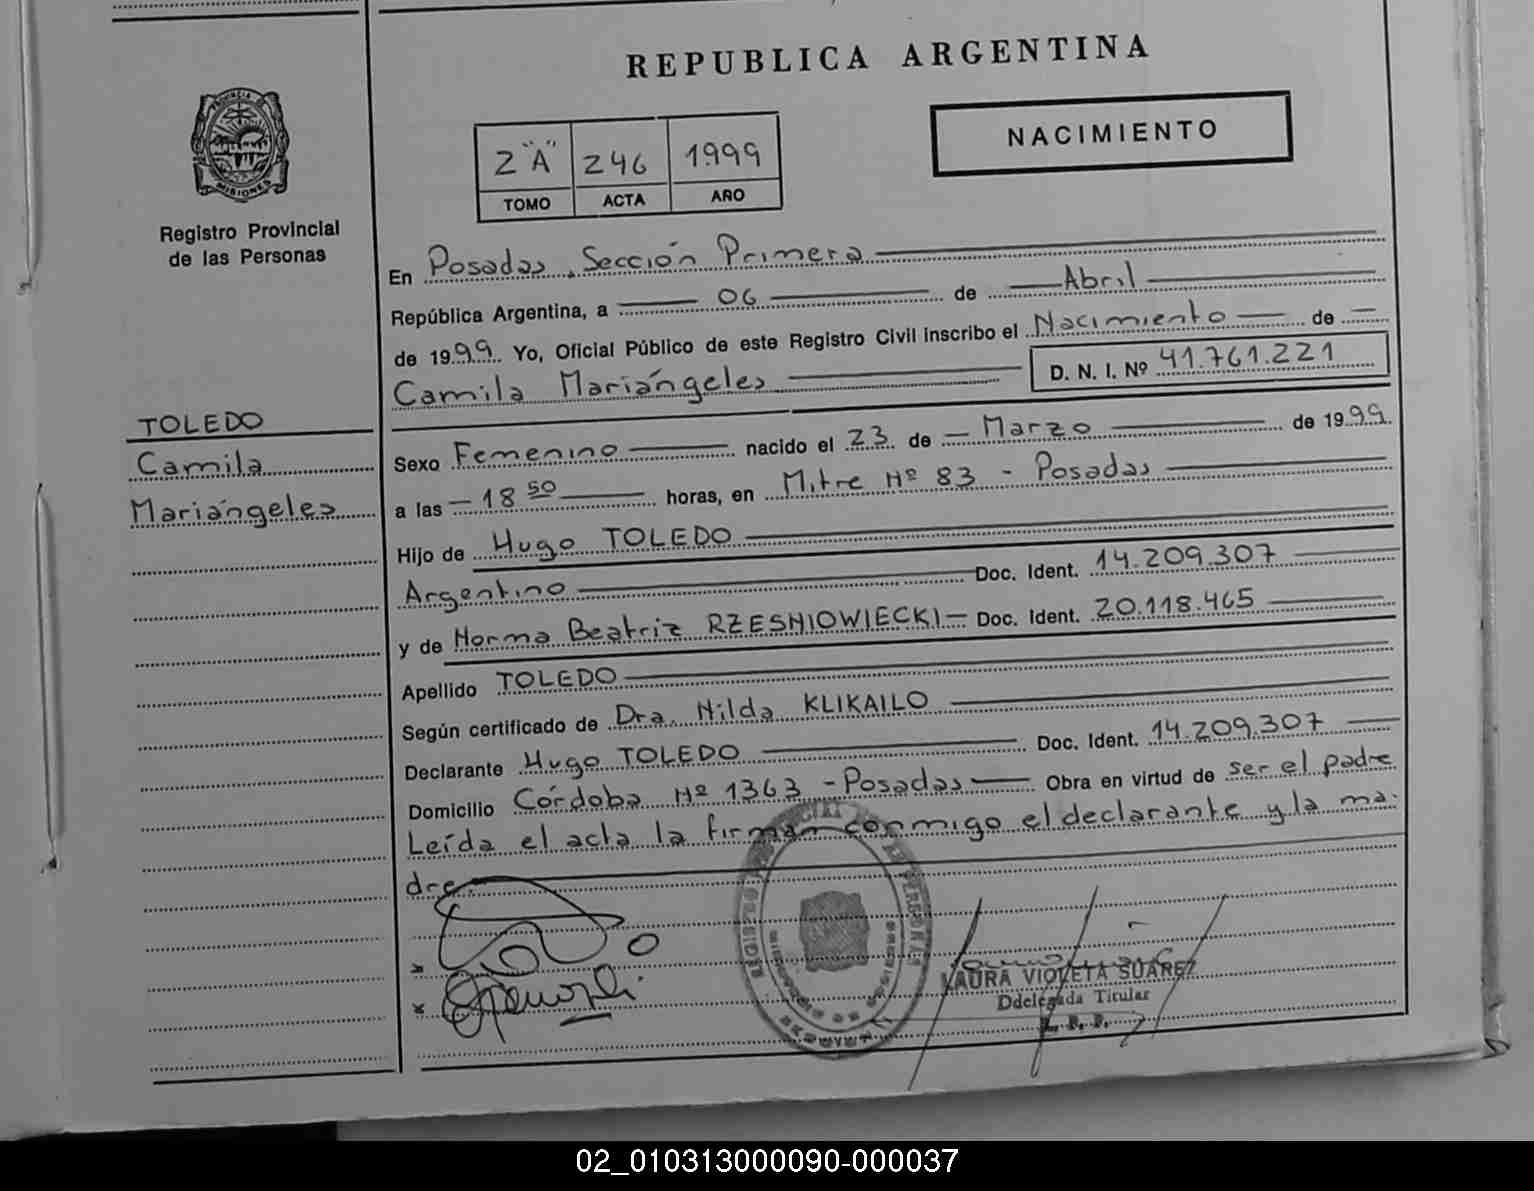 REPUBLICA ARGENTINA
PROVINCIA DE
MISIONES
Registro Provincial
de las Personas
2 "A" 246 1999
TOMO ACTA AÑO
NACIMIENTO
En Posadas, Sección Primera
República Argentina, a 06 de Abril
de 1999. Yo, Oficial Público de este Registro Civil inscribo el Nacimiento de
Camila Mariángeles D. N. I. Nº 41.761.221
TOLEDO
Camila
Mariángeles
Sexo Femenino nacido el 23 de Marzo de 1999
a las 18 50 horas, en Mitre Nº 83 - Posadas
Hijo de Hugo TOLEDO
Argentino Doc. Ident. 14.209.307
y de Norma Beatriz RZESNIOWIECKI Doc. Ident. 20.118.465
Apellido TOLEDO
Según certificado de Dra. Nilda KLIKAILO
Declarante Hugo TOLEDO Doc. Ident. 14.209.307
Domicilio Córdoba Nº 1363 - Posadas Obra en virtud de ser el padre
Leída el acta la firman conmigo el declarante y la ma-
dre
LAURA VIOLETA SUAREZ
Ddelegada Titular
R. P. P.
02_010313000090-000037